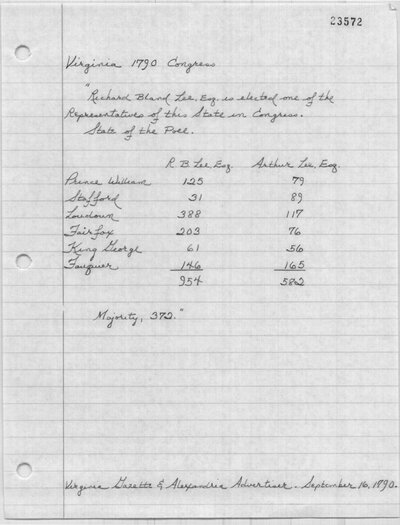 23572
Virginia 1790 Congress
"Richard Bland Lee, Esq. is elected one of the
Representatives of this State in Congress.
State of the Poll.
R. B. Lee, Esq. Arthur Lee, Esq.
Prince William 125 79
Stafford 31 89
Loudoun 388 117
Fairfax 203 76
King George 61 56
Fauquier 146 165
954 582
Majority, 372."
Virginia Gazette & Alexandria Advertiser. September 16, 1790.